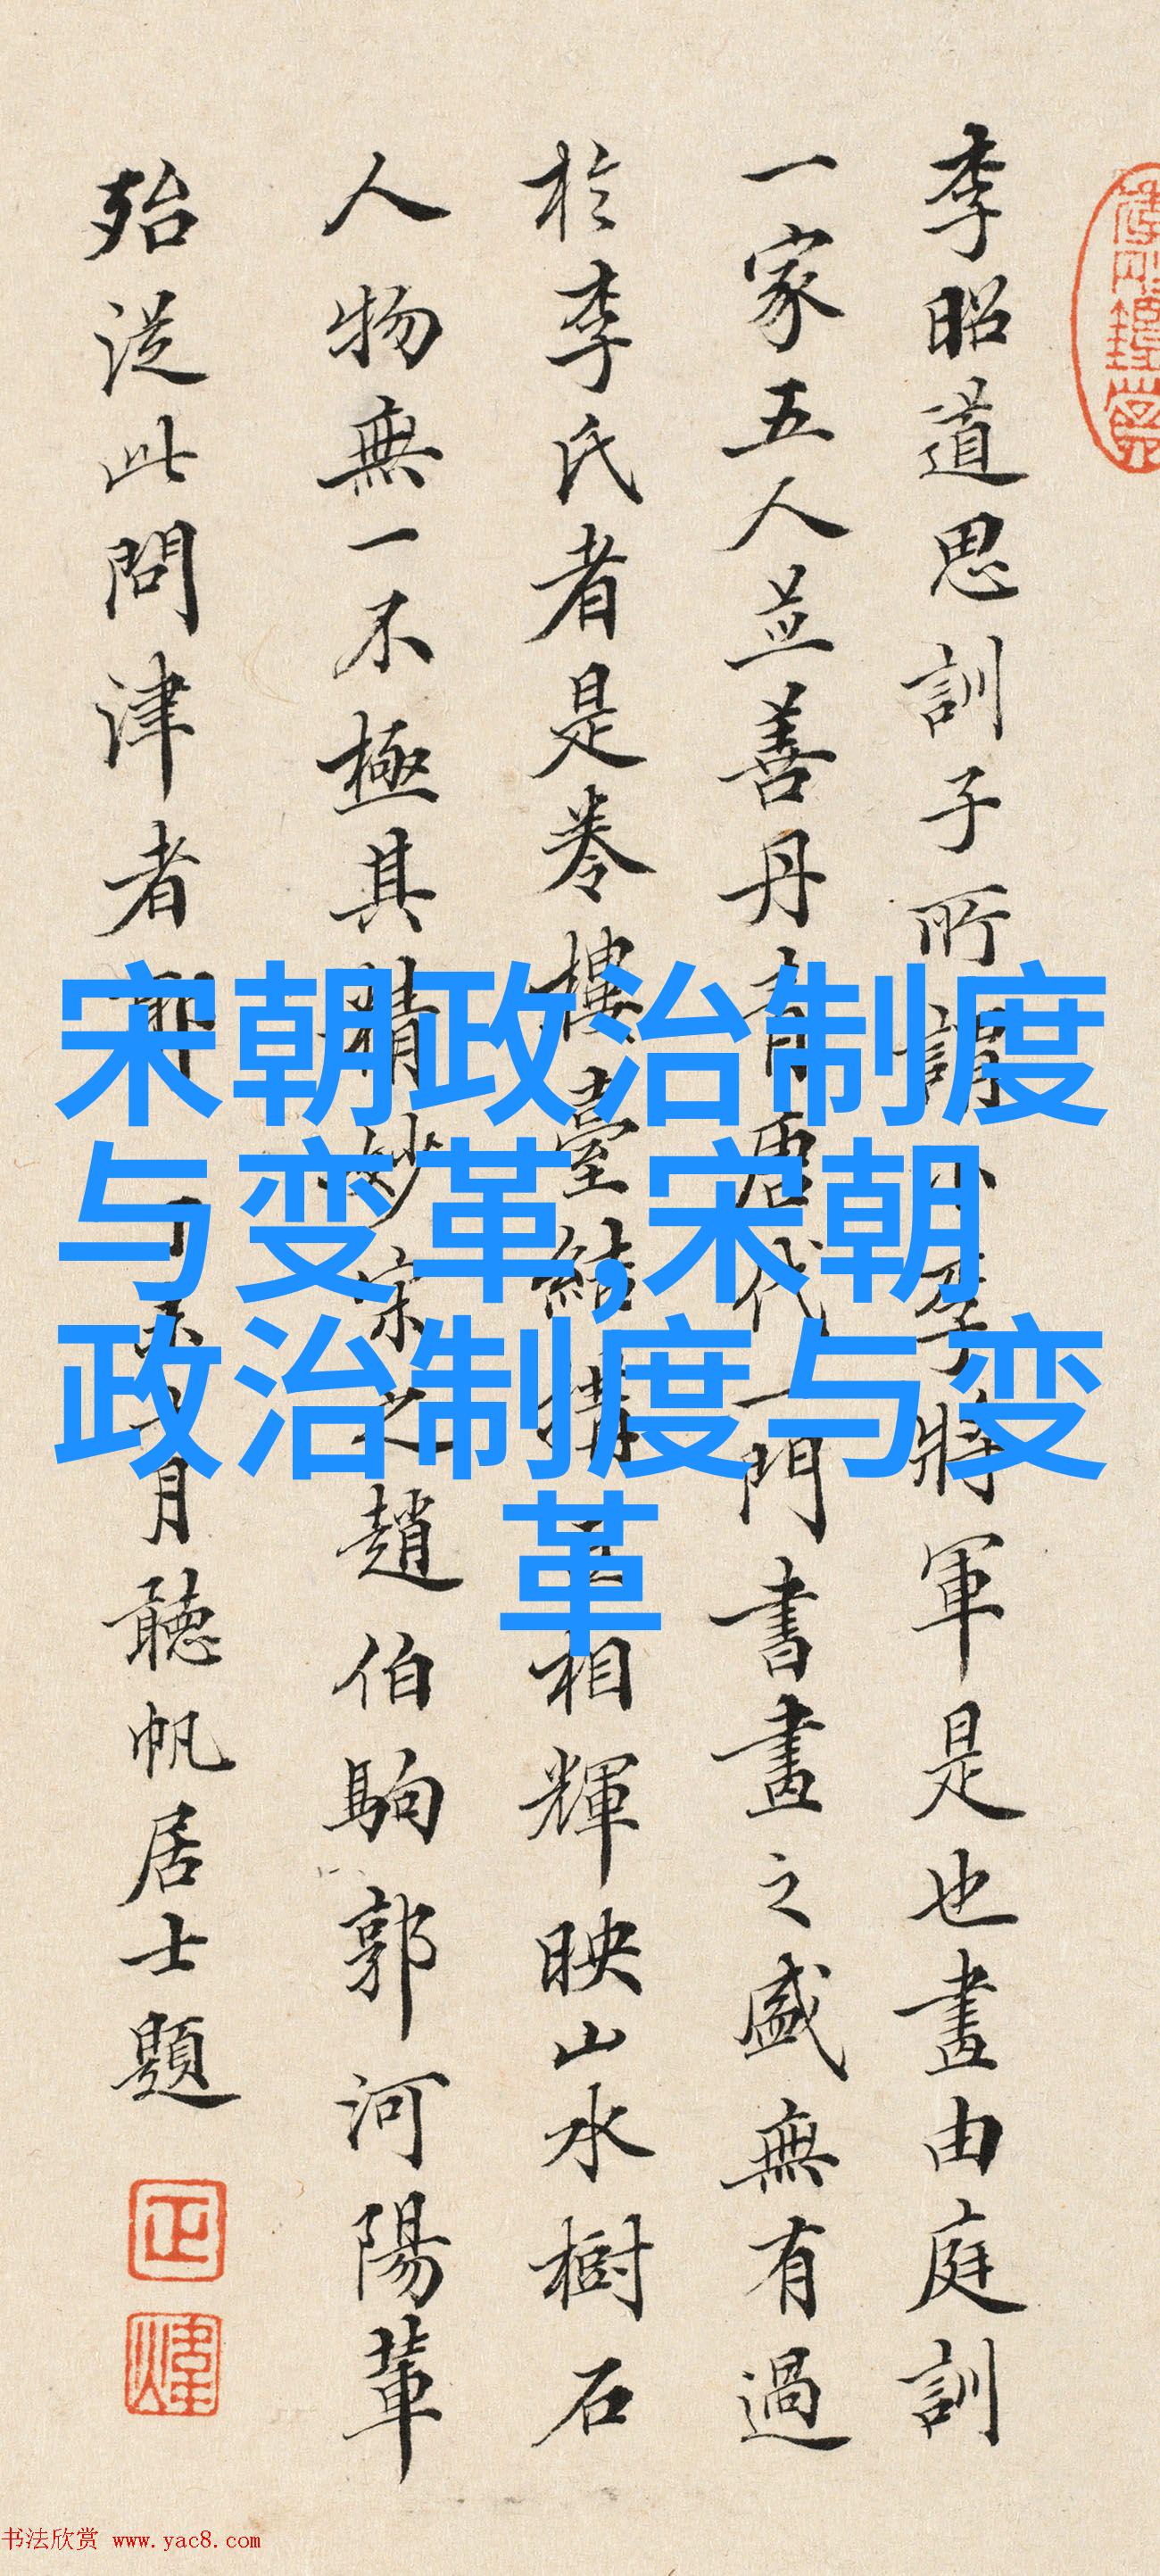 李昭道思訓子所謂小李將軍是也畫由庭訓
一家五人並善丹青唐代一門書畫之盛無有過
於李氏者是卷樓臺結構相輝映山水樹石
人物無一不極其精妙宋之趙伯駒郭河陽輩
殆從此問津者耶月聽帆居士題
正
煒
宋朝政治制度
与变革,宋朝
政治制度与变
革
书法欣赏 www.yac8.com